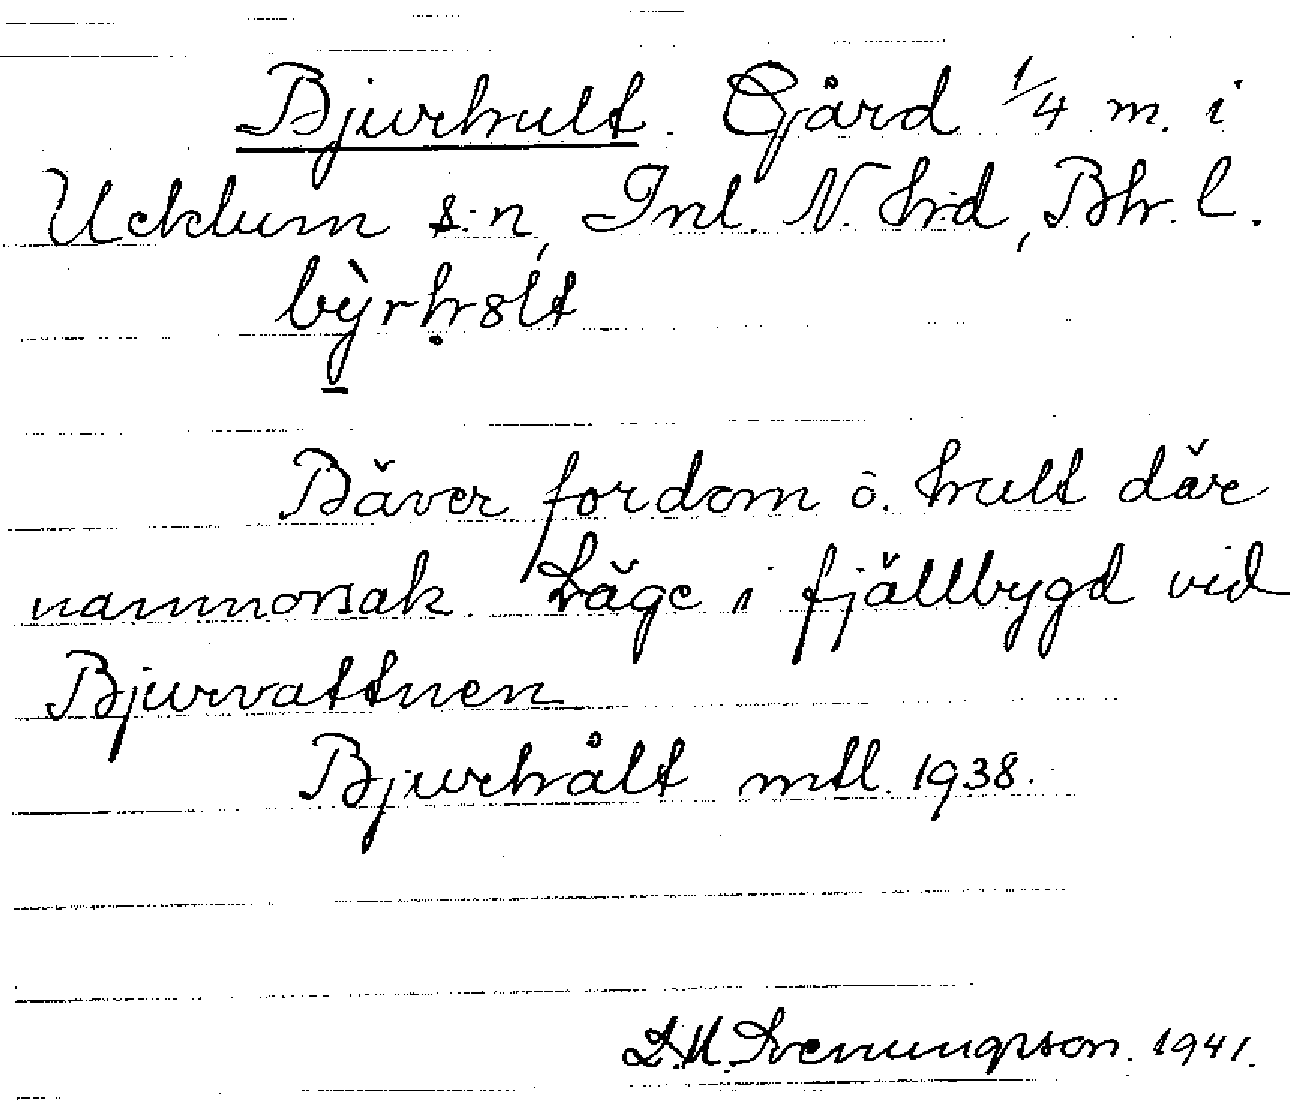 Bjurhult. Gård 1/4 m. i
Ucklum s:n, Inl. N. hd, Bhr. l.
bỳrhs̥lt
Bäver fordom o. hult där
namnorsak. Läge i fjällbygd vid
Bjurvattnen
Bjurhålt mtl. 1938.
D.M. Svenungsson. 1941.